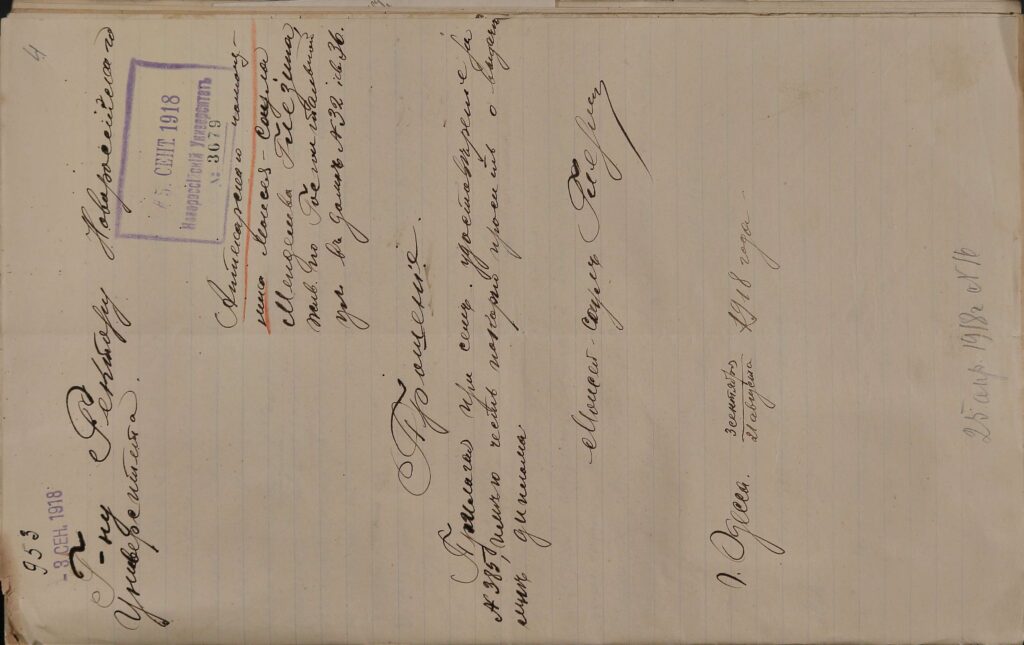 4
953
- 3 СЕН. 1918
Г-ну Ректору Новороссійскаго
Университета.
5. СЕНТ 1918
Новороссійскій Университетъ
№ 3679
Аптекарскаго помощ-
ника Моисея-Саула
Менделева
жив. по Госпитальной
ул. въ домѣ № 32 кв. 36.
Прошеніе.
Прилагая при семъ удостовѣреніе за
№ 385, имѣю честь покорно просить о выдачѣ
мнѣ диплома
Моисей-Саулъ
г. Одесса. 3 сентября
21 августа 1918 года
25 апр 1918 г № 16